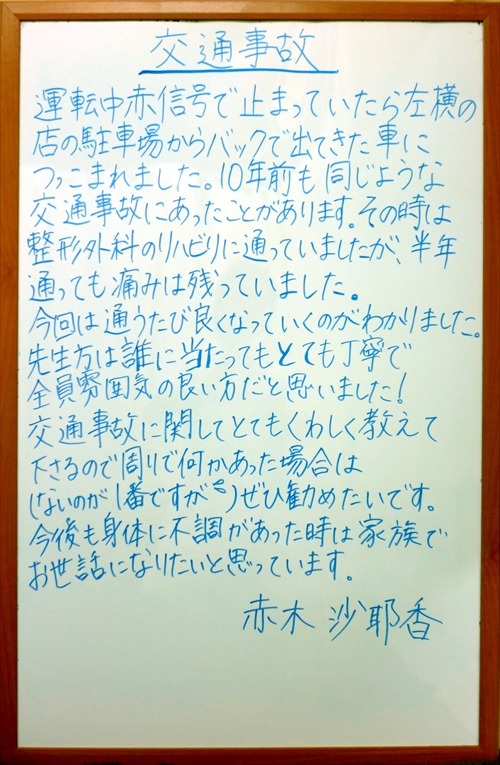 交通事故
運転中赤信号で止まっていたら左横の
店の駐車場からバックで出てきた車に
つっこまれました。10年前も同じような
交通事故にあったことがあります。その時は
整形外科のリハビリに通っていましたが、半年
通っても痛みは残っていました。
今回は通うたび良くなっていくのがわかりました。
先生方は誰に当たってもとても丁寧で
全員雰囲気の良い方だと思いました!
交通事故に関してとてもくわしく教えて
下さるので周りで何かあった場合は
(ないのが1番ですが)ぜひ勧めたいです。
今後も身体に不調があった時は家族で
お世話になりたいと思っています。
赤木 沙耶香